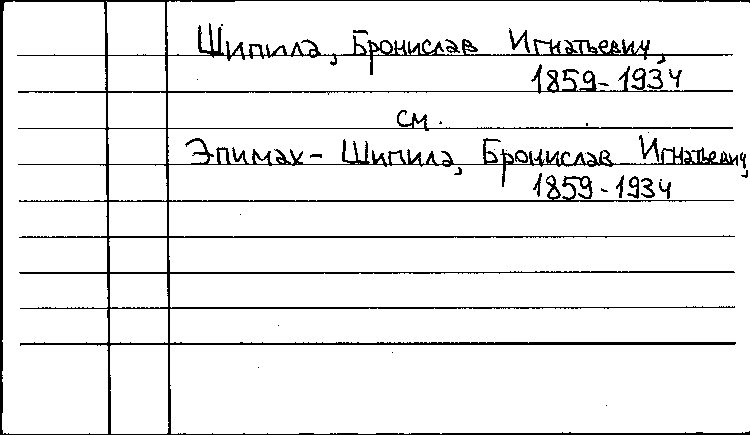 Шипила, Бронислав Игнатьевич,
1859-1934
см.
Эпимах-Шипила, Бронислав Игнатьевич,
1859-1934